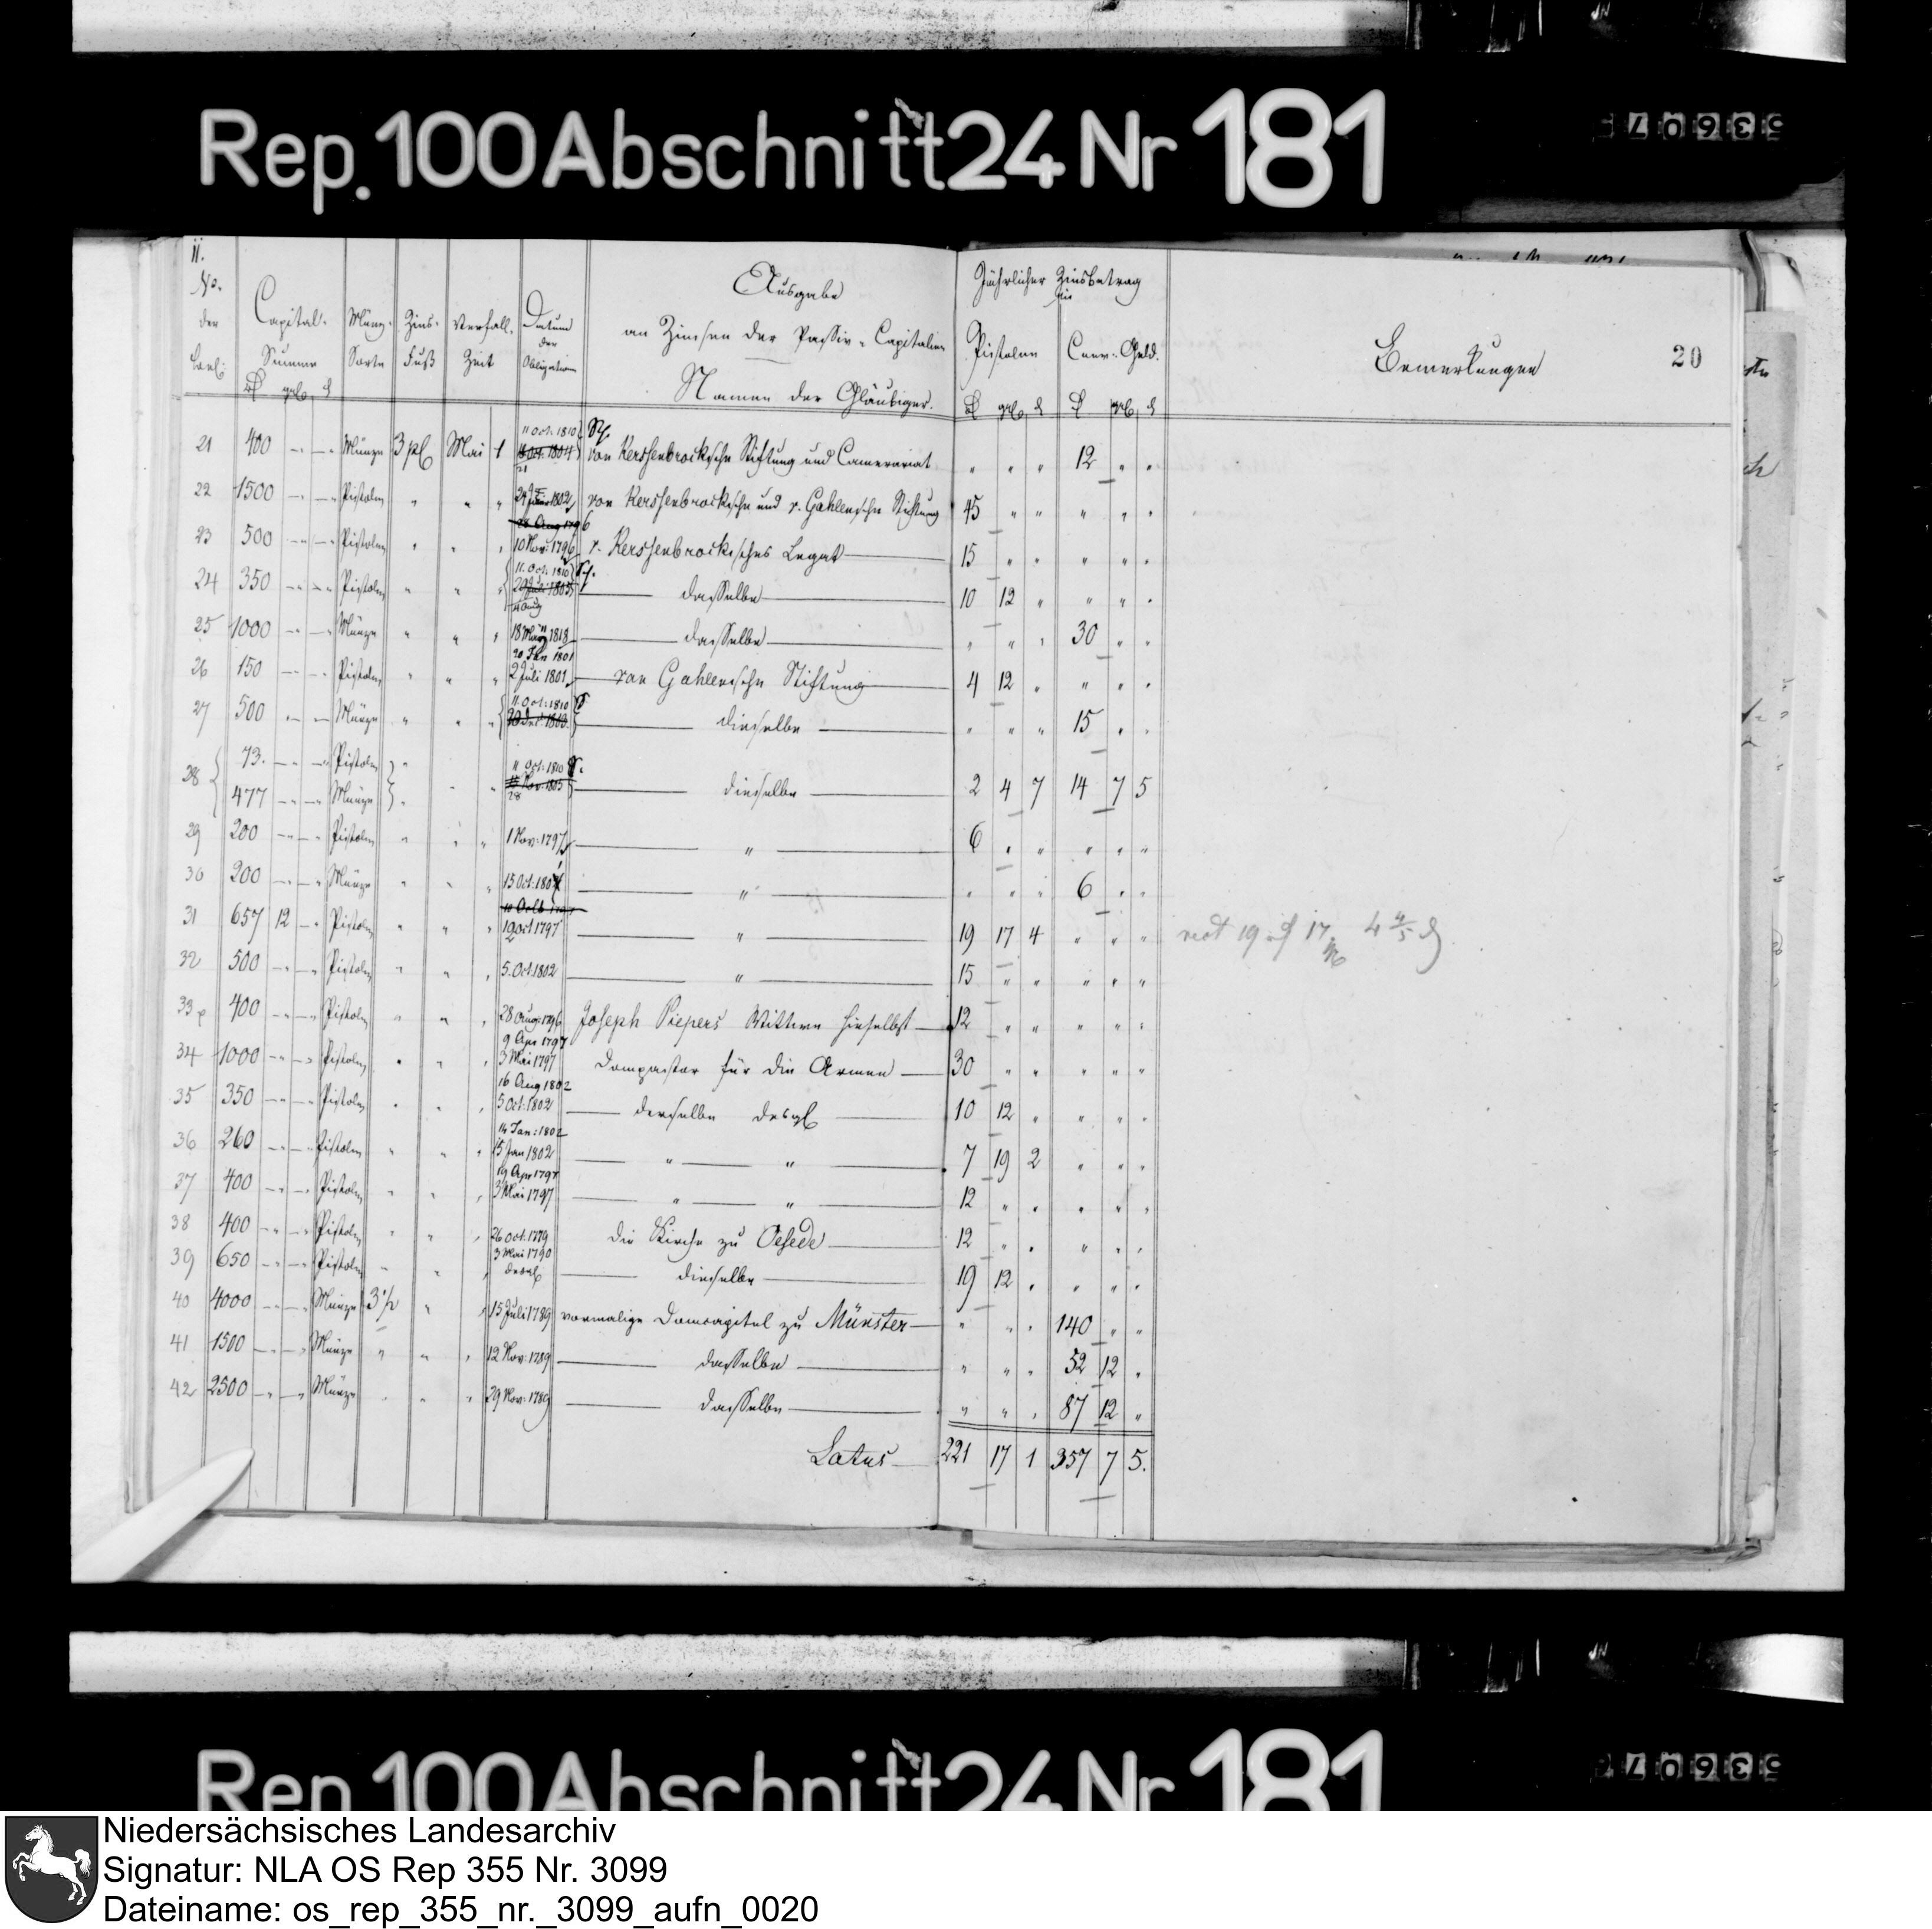 Rep. 100 Abschnitt 24 Nr 181
II.
No. der Corl:
Capital-Summe
Münz-Sorte
Zins-Fuß
Verfall-Zeit
Datum der Obligation
Ausgabe
an Zinsen der Passiv-Capitalien
Namen der Gläubiger.
Jährlicher Zinsbetrag in
Pistolen
Conv: Geld.
Bemerkungen
20
21 400 – – Münze 3 pC Mai 1 11 Oct: 1810 von Kerssenbrocksche Stiftung und Camerariat " " " 12 " "
22 1500 – – Pistolen " " " 1802 von Kerssenbrocksche und v. Gahlensche Stiftung 45 " " " " "
28 Aug 1796
23 500 – – Pistolen " " " 10 Nov: 1796 v. Kerssenbrocksches Legat 15 " " " " "
11. Oct: 1810
24 350 – – Pistolen " " " 20 Juli 1805 dasselbe 10 12 " " " "
4 Aug
25 1000 – – Münze " " " 18 März 1818 dasselbe " " " 30 " "
20 Jun 1801
26 150 – – Pistolen " " " 2 Juli 1801 von Gahlensche Stiftung 4 12 " " " "
11. Oct: 1810
27 500 – – Münze " " " dieselbe " " " 15 " "
28 73. – – Pistolen " 11 Oct: 1810
477 – – Münze " " " Nov: 1805 dieselbe 2 4 7 14 7 5
28
29 200 – – Pistolen " " " 1 Nov: 1797 " 6 " " " " "
30 200 – – Münze " " " 15 Oct: 180 " " " " 6 " "
31 657 12 – Pistolen " " " 19 Oct 1797 " 19 17 4 " " " 19 17 4 4/5
32 500 – – Pistolen " " " 5. Oct. 1802 " 15 " " " " "
33 400 – – Pistolen " " " 28 Aug: 1796 Joseph Piepers Wittwe hieselbst 12 " " " " "
9 Apr 1797
34 1000 – – Pistolen " " " 3 Mai 1797 Dompastor für die Armen 30 " " " " "
16 Aug 1802
35 350 – – Pistolen " " " 5 Oct: 1802 derselbe desgl 10 12 " " " "
14 Jan: 1802
36 260 – – Pistolen " " " 15 Jan 1802 " " 7 19 2 " " "
19 Apr 1797
37 400 – – Pistolen " " " 3 Mai 1797 " " 12 " " " " "
38 400 – – Pistolen " " " 26 Oct. 1779 die Kirche zu Oesede 12 " " " " "
3 Mai 1790
39 650 – – Pistolen " " " desgl dieselbe 19 12 " " " "
40 4000 – – Münze 3 1/2 " " 15 Juli 1789 vormalige Domcapitel zu Münster " " " 140 " "
41 1500 – – Münze " " " 12 Nov: 1789 dasselbe " " " 52 12 "
42 2500 – – Münze " " " 29 Nov: 1789 dasselbe " " " 87 12 "
Latus 221 17 1 357 7 5.
Rep. 100 Abschnitt 24 Nr 181
Niedersächsisches Landesarchiv
Signatur: NLA OS Rep 355 Nr. 3099
Dateiname: os_rep_355_nr._3099_aufn_0020